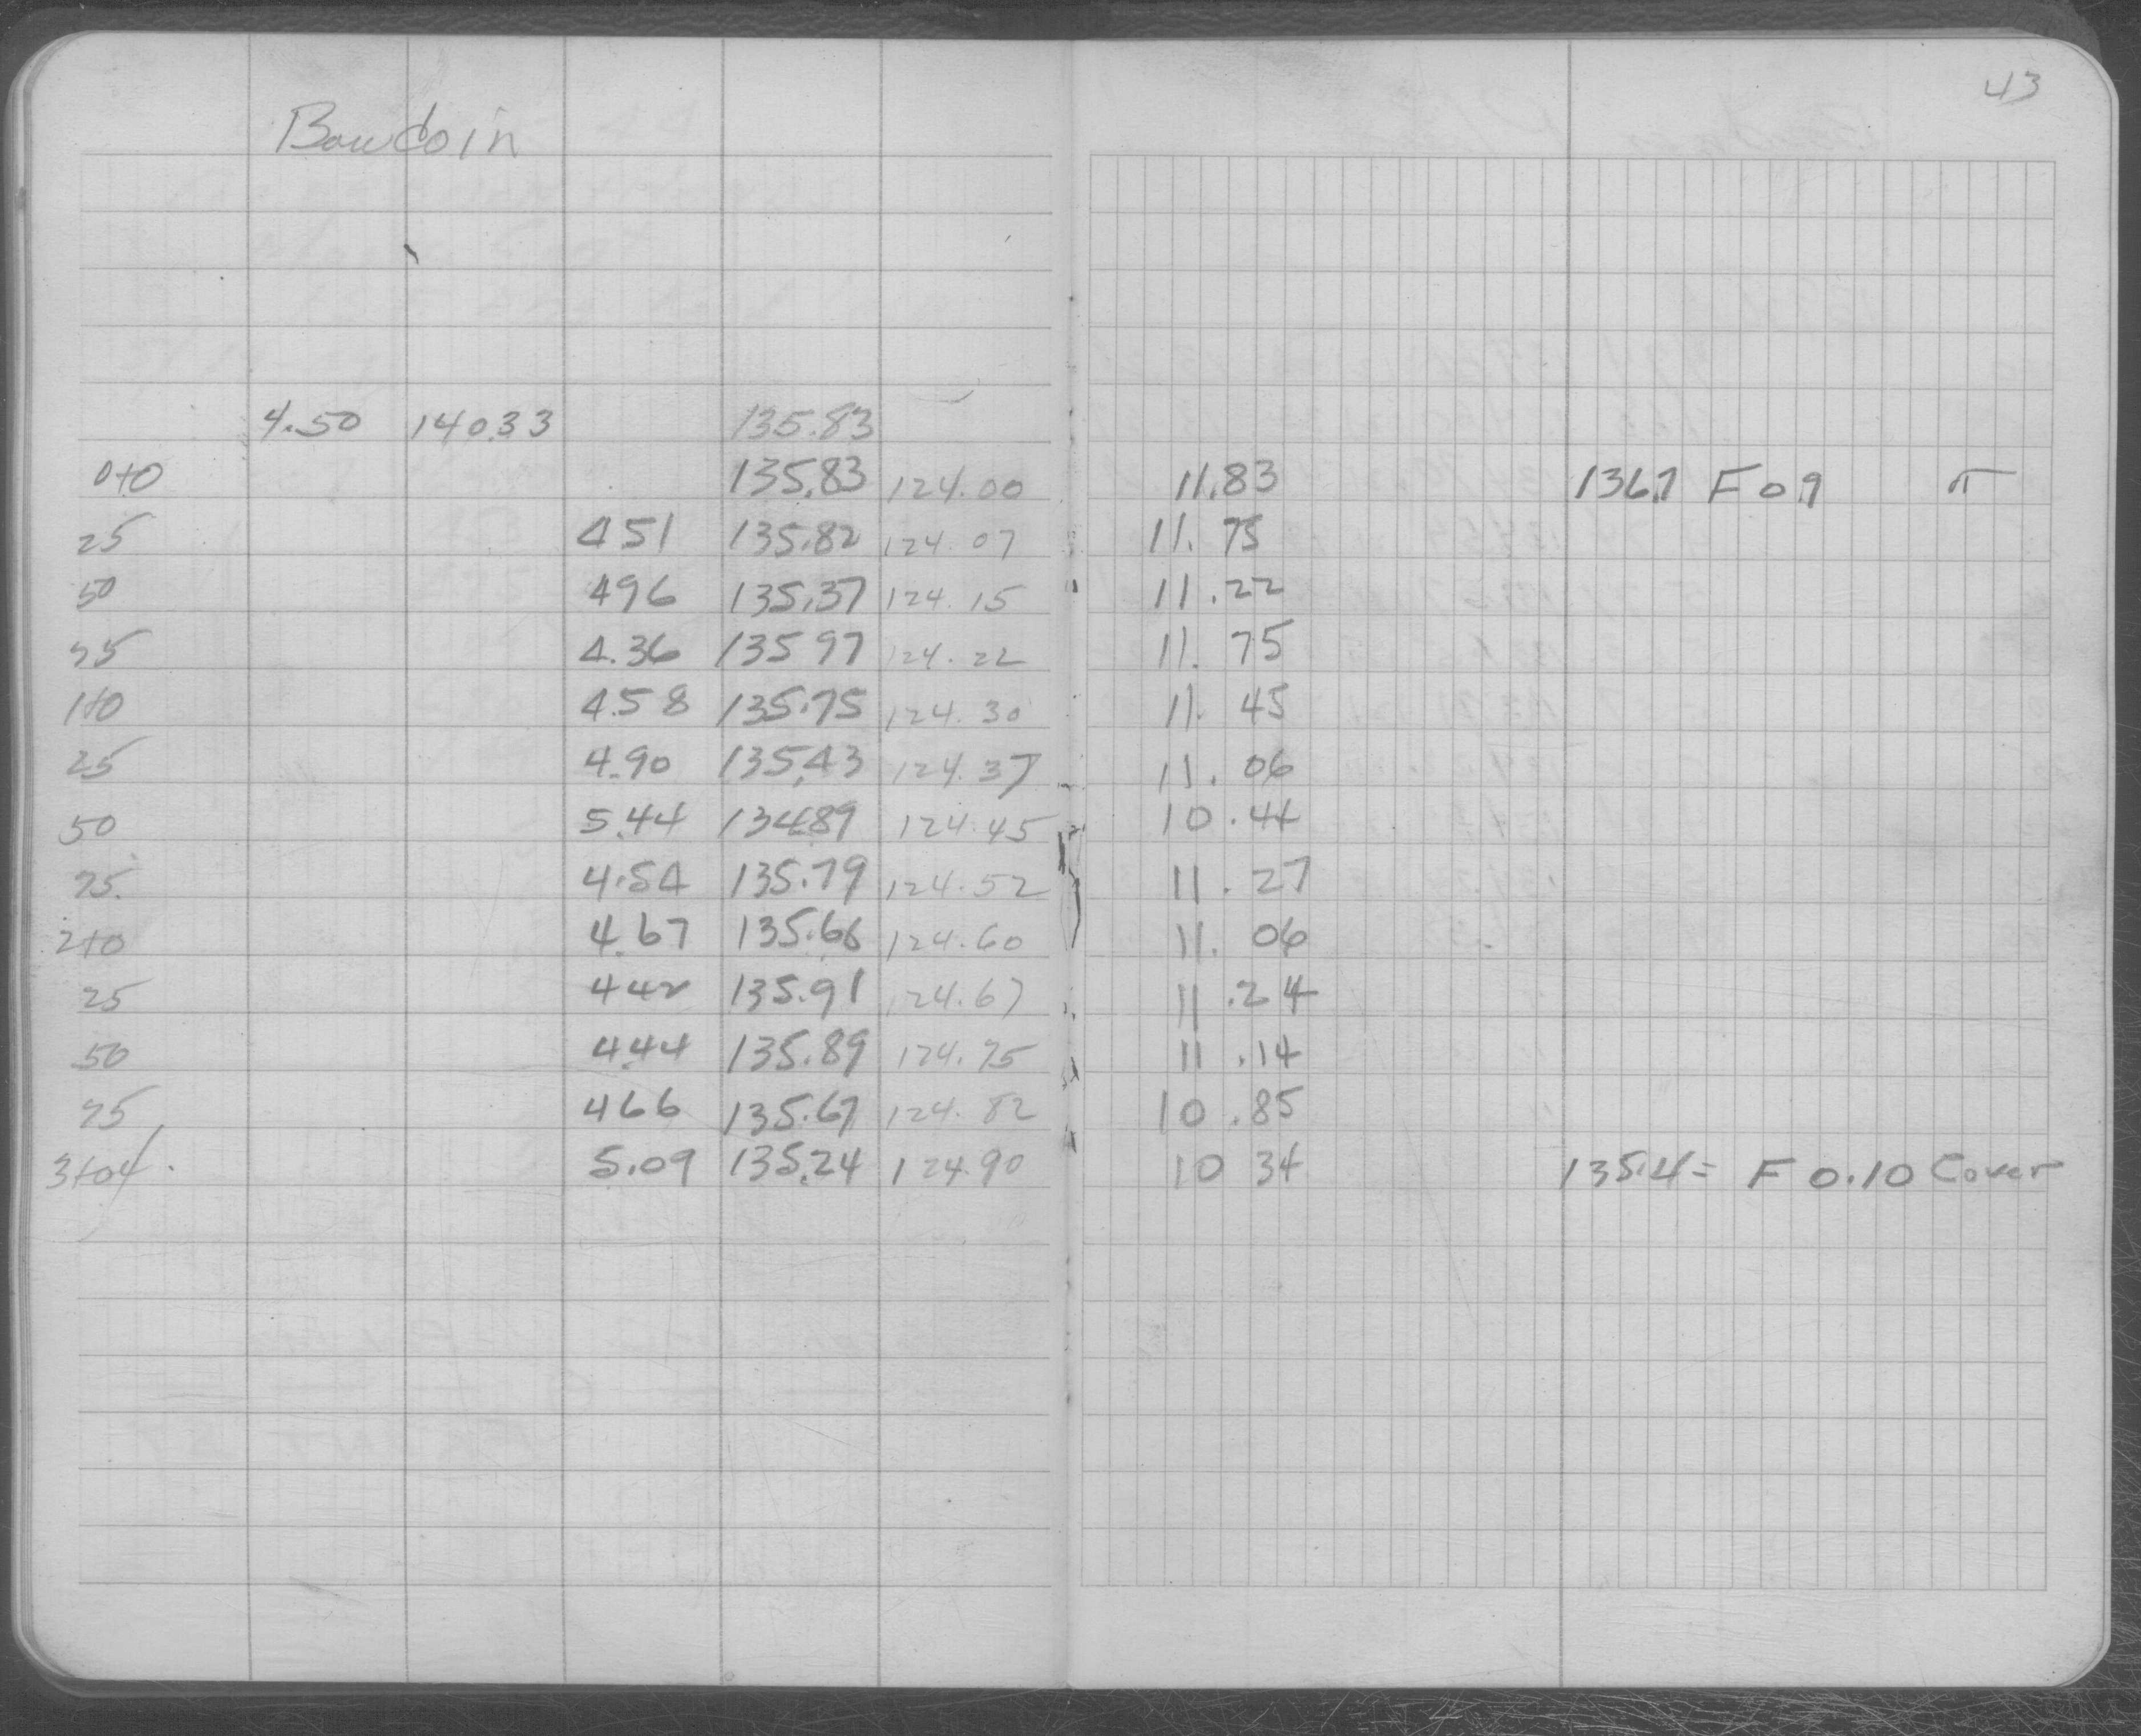 43
Bowdoin
4.50 140.33 135.83
0+0 135.83 124.00 11.83 136.7 F 0.9 π
25 4 51 135.82 124.07 11.75
50 496 135.37 124.15 11.22
75 4.36 135 97 124.22 11.75
1+0 4.58 135.75 124.30 11.45
25 4.90 135.43 124.37 11.06
50 5.44 134.89 124.45 10.44
75. 4.54 135.79 124.52 11.27
2+0 4.67 135.66 124.60 11.06
25 442 135.91 124.67 11.24
50 4.44 135.89 124.75 11.14
75 466 135.67 124.82 10.85
3+04. 5.09 135.24 124.90 10 34 135.4= F 0.10 Cover